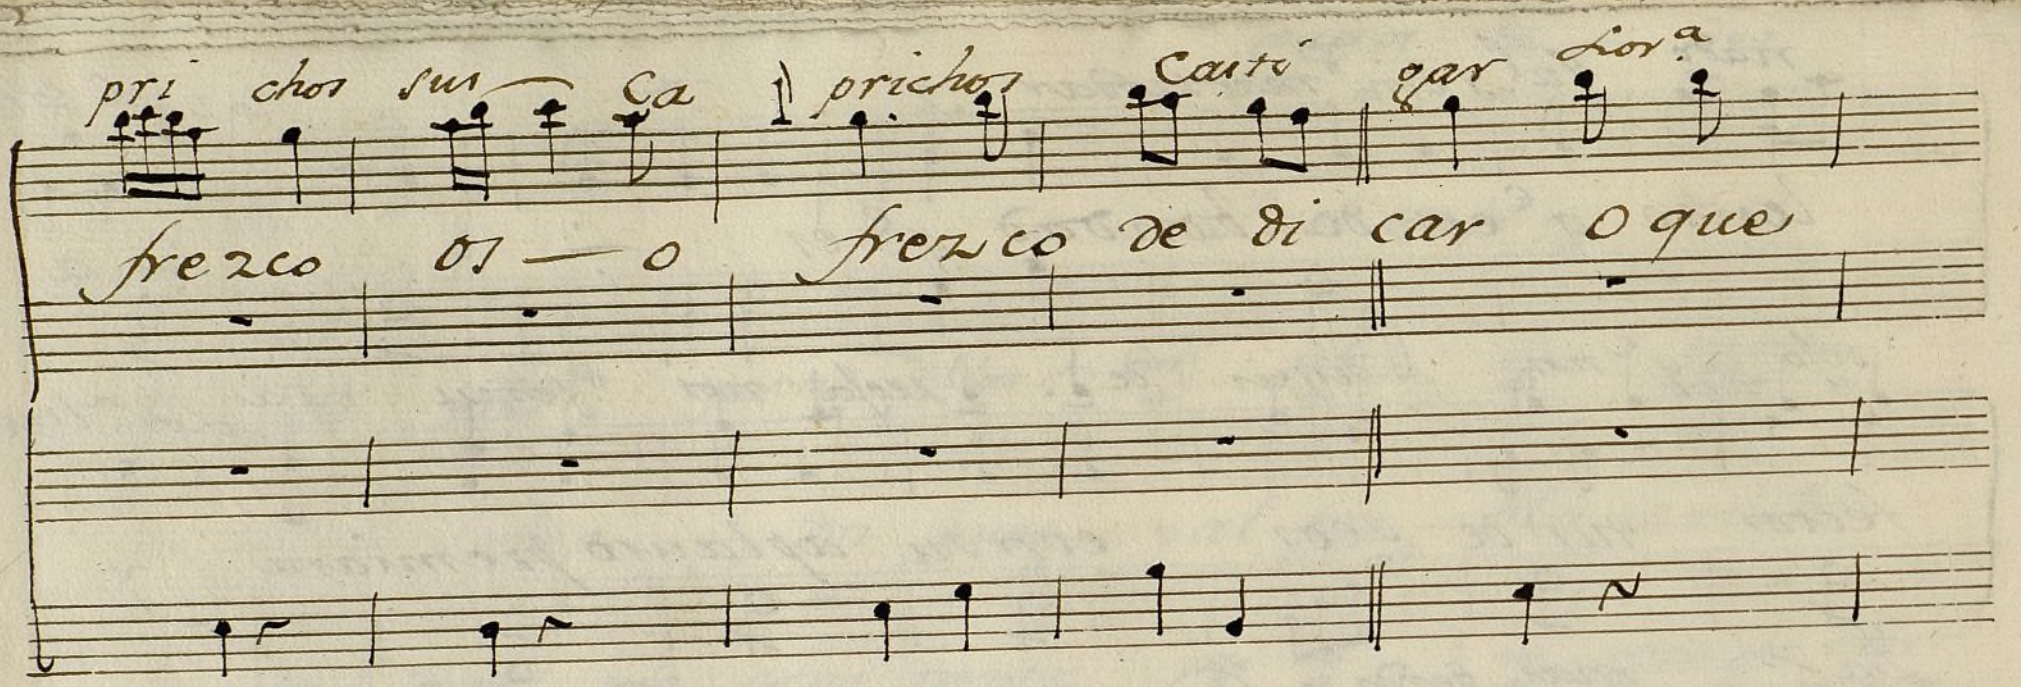 pri chos sus — Ca prichos Casti gar
frezco os — o frezco de di car o que